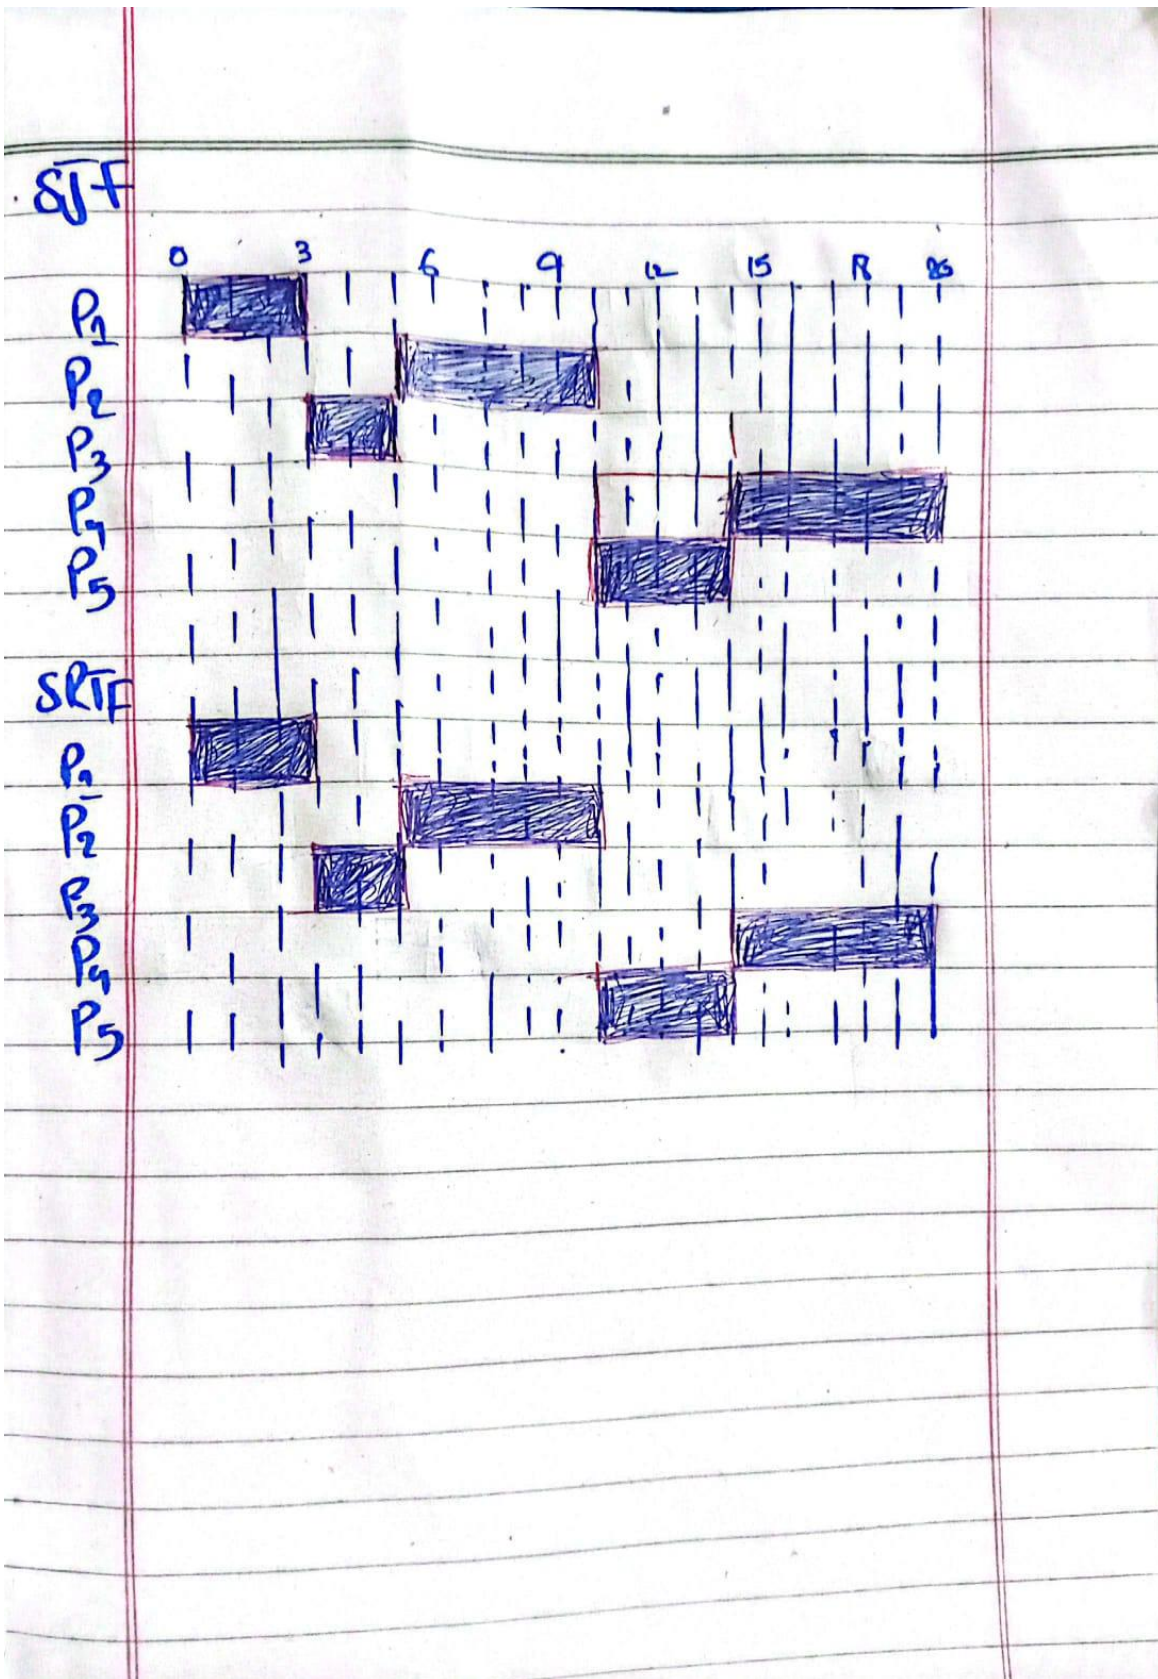 SJF
0 3 6 9 12 15 18 20
P1
P2
P3
P4
P5
SRTF
P1
P2
P3
P4
P5